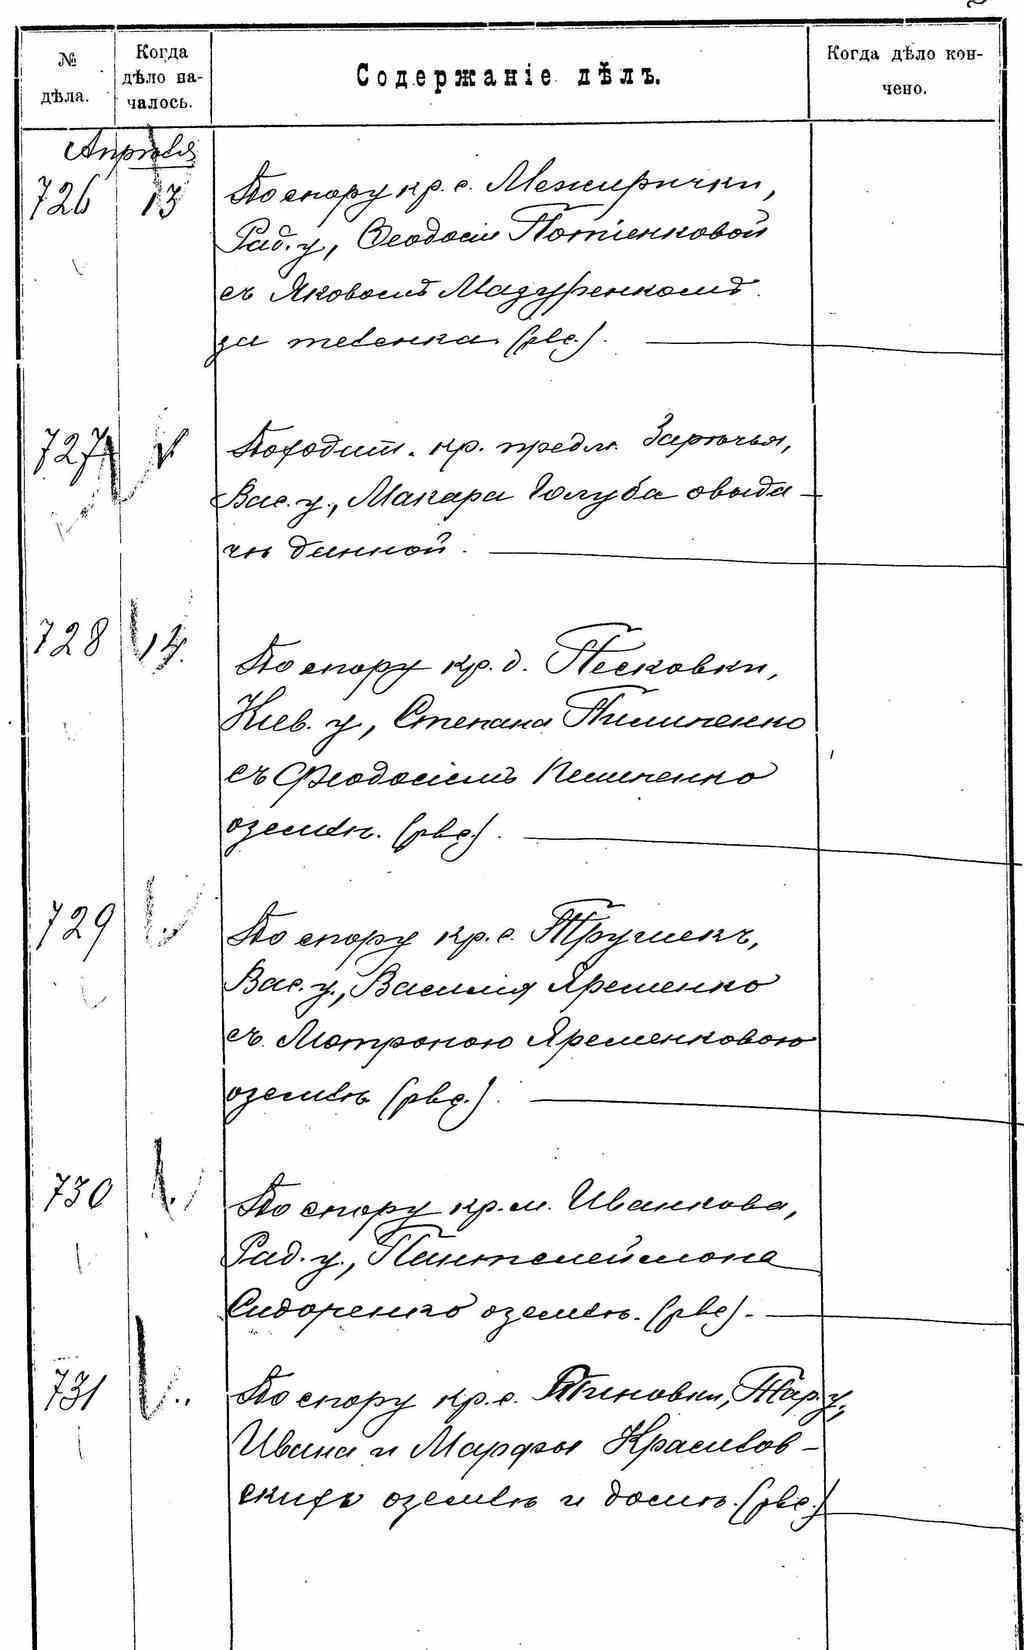 № дѣла.
Когда дѣло на-
чалось.
Содержаніе дѣлъ.
Когда дѣло кон-
чено.
Апрѣля
726 13 По спору кр. с. Межирички,
Рад. у., Ѳеодосіи Потіенковой
съ Яковомъ Мазуренкомъ
за (рвс.).
727 По ходат. кр. предм. Зарѣчья,
Вас. у., Макара Голуба о выда-
чѣ данной.
728 14. По спору кр. д. Песковки,
Кіев. у., Степана Пилипенко
съ Феодосіемъ Пилипенко
о землѣ. (рвс.).
729 По спору кр. с. Трушекъ,
Вас. у., Василія Яременко
съ Мотроною Яременковою
о землѣ (рвс.).
730 По спору кр. м. Иванкова,
Рад. у., Пантелеймона
Сидоренко о землѣ. (рвс).
731 По спору кр. с. Тиновки, Тар. у.,
Ивана и Марфы Красивов-
скихъ о землѣ и домѣ. (рвс.)